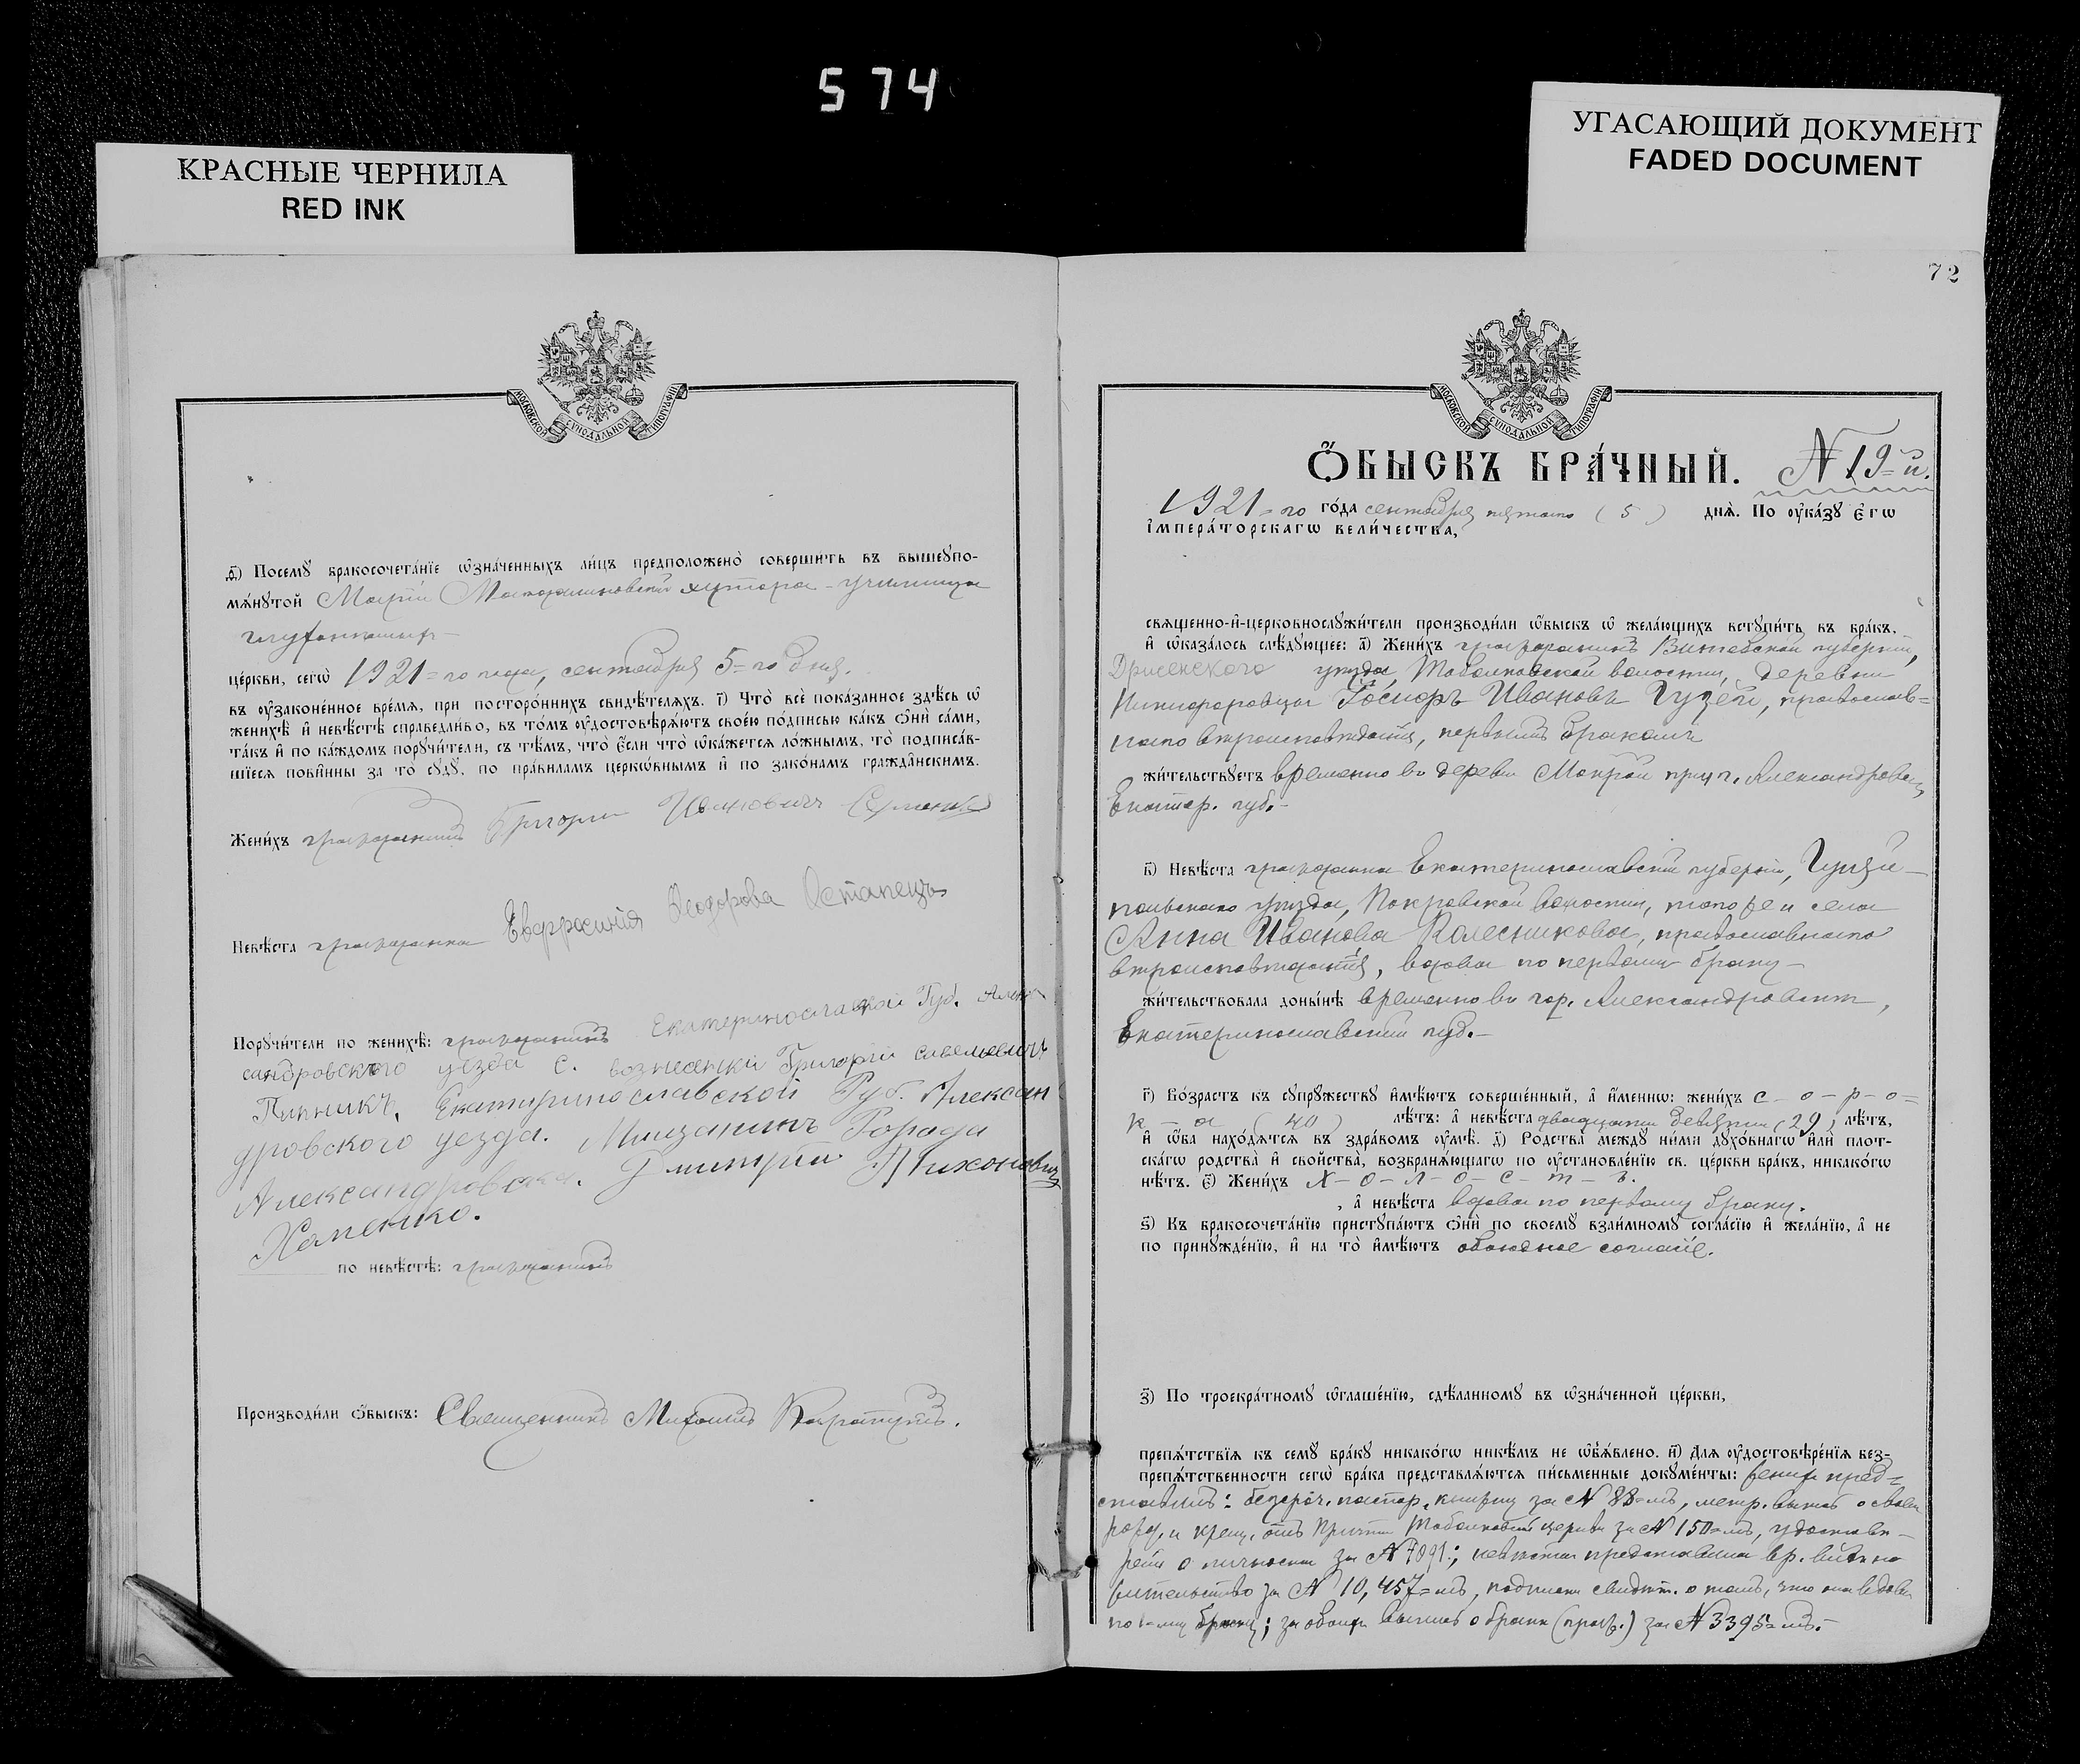 574
КРАСНЫЕ ЧЕРНИЛА
RED INK
УГАСАЮЩИЙ ДОКУМЕНТ
FADED DOCUMENT
МОСКОВСКОЙ СѴНОДАЛЬНОЙ ТИПОГРАФІИ
ѳ҃) Посемꙋ̀ бракосочета́нїе ѡ҆зна́ченныхъ ли́цъ предположено̀ соверши́ть въ вышеꙋпо-
мѧ́нꙋтой Маріи Магдалиновской хутора-училища
глухонѣмыхъ
це́ркви, сегѡ̀ 1921=го года, сентября 5=го дня.
въ ᲂу҆зако́ненное вре́мѧ, при посторо́ннихъ свидѣ́телѧхъ. і҃) Что̀ всѐ пока́занное здѣ́сь ѡ҆
женихѣ̀ и҆ невѣ́стѣ справедли́во, въ то́мъ ᲂу҆достовѣрѧ́ютъ свое́ю по́дписью ка́къ ѻ҆нѝ са́ми,
та́къ и҆ по ка́ждомъ порꙋчи́тели, съ тѣ́мъ, что̀ є҆́сли что̀ ѡ҆ка́жетсѧ ло́жнымъ, то̀ подписа́в-
шїесѧ пови́нны за то̀ сꙋдꙋ̀, по пра́виламъ церко́внымъ и҆ по зако́намъ гражда́нскимъ.
Жени́хъ гражданинъ Григорій Ивановичъ
Невѣ́ста гражданка Евфросинія Ѳеодорова Остапецъ
Порꙋчи́тели по женихѣ̀: гражданинъ Екатеринославской Губ. Алек
сандровского уезда с. вознесенки Григорій савельевичъ
Пипникъ, Екатеринославской Губ. Алексан
дровского уезда. Мищанинъ Города
Александровска. Дмитрій Тихоновичъ
Хапенко.
по невѣ́стѣ: гражданинъ
Производи́ли ѻ҆́быскъ: Священникъ Михаилъ
72
МОСКОВСКОЙ СѴНОДАЛЬНОЙ ТИПОГРАФІИ
Ѻ҆́БЫСКЪ БРА́ЧНЫЙ. № 19=й.
1921=го го́да сентября пятаго (5) днѧ̀. По ᲂу҆ка́зꙋ Є҆гѡ̀
І҆мпера́торскагѡ вели́чества,
свѧще́нно-и҆-церковнослꙋжи́тели производи́ли ѻ҆́быскъ ѡ҆ жела́ющихъ встꙋпи́ть въ бра́къ,
и҆ ѡ҆каза́лось слѣ́дꙋющее: а҃) Жени́хъ гражданинъ Витебской губерніи,
Дрисенского уѣзда, Тоболковской волости, деревни
Іосифъ Ивановъ Гузей, православ=
наго вѣроисповѣданія, первымъ бракомъ
жи́тельствꙋетъ временно въ деревнѣ Мокрой при г. Александровскѣ,
Екатер. губ.-
в҃) Невѣ́ста гражданка Екатеринославской губерніи, Гуляй-
польскаго уѣзда, Покровской волости, того же и села
Анна Иванова Колесникова, православнаго
вѣроисповѣданія, вдова по первому браку-
жи́тельствовала доны́нѣ временно въ гор. Александровскѣ,
Екатеринославской губ.-
г҃) Во́зрастъ къ сꙋпрꙋ́жествꙋ и҆мѣ́ютъ соверше́нный, а҆ и҆́менно: жени́хъ с-о-р-о=
к-а (40) лѣ́тъ: а҆ невѣ́ста двадцати девяти (29) лѣ́тъ,
и҆ ѻ҆́ба нахо́дѧтсѧ въ здра́вомъ ᲂу҆мѣ̀. д҃) Родства̀ междꙋ̀ ни́ми дꙋхо́внагѡ и҆лѝ плот-
ска́гѡ родства̀ и҆ сво́йства̀, возбранѧ́ющагѡ по ᲂу҆становле́нїю св. це́ркви бра́къ, никако́гѡ
нѣ́тъ. є҃) Жени́хъ Х-о-л-о-с-т-ъ.
, а҆ невѣ́ста вдова по первому браку.
ѕ҃) Къ бракосочета́нїю пристꙋпа́ютъ ѻ҆нѝ по своемꙋ̀ взаи́мномꙋ согла́сїю и҆ жела́нїю, а҆ не
по принꙋжде́нїю, и҆ на то̀ и҆мѣ́ютъ обоюдное согласіе.
з҃) По троекра́тномꙋ ѡ҆глаше́нїю, сдѣ́ланномꙋ въ ѡ҆зна́ченной це́ркви,
препѧ́тствїѧ къ семꙋ̀ бра́кꙋ никако́гѡ никѣ́мъ не ѡ҆бъѧ́влено. и҃) Длѧ ᲂу҆достовѣре́нїѧ без-
препѧ́тственности сегѡ̀ бра́ка представлѧ́ютсѧ пи́сьменные докꙋме́нты: женихъ пред=
ставилъ: безсроч. паспор. книжку за № 88=мъ, метр. выпись о своемъ
рожд. и крещ. отъ Причта Тоболковской церкви за № 150=мъ, удостовѣ-
реніе о личности за № 7091; невѣста представила вр. видъ на
жительство за № 10,457=мъ, свидѣт. о томъ, что она вдова
по 1-му браку; за обоихъ выпись о бракѣ (гражд.) за № 3395=мъ.-